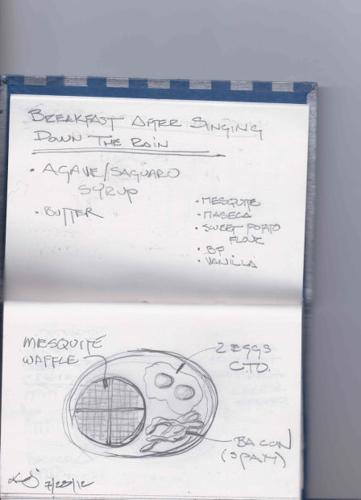 BREAKFAST AFTER SINGING
DOWN THE RAIN
• AGAVE/SAGUARO
SYRUP
• BUTTER
• MESQUITE
• MASECA
• SWEET POTATO
FLOUR
• BP
• VANILLA
MESQUITE
WAFFLE
2 EGGS
CTO.
BACON
(SPAM)
7/28/12